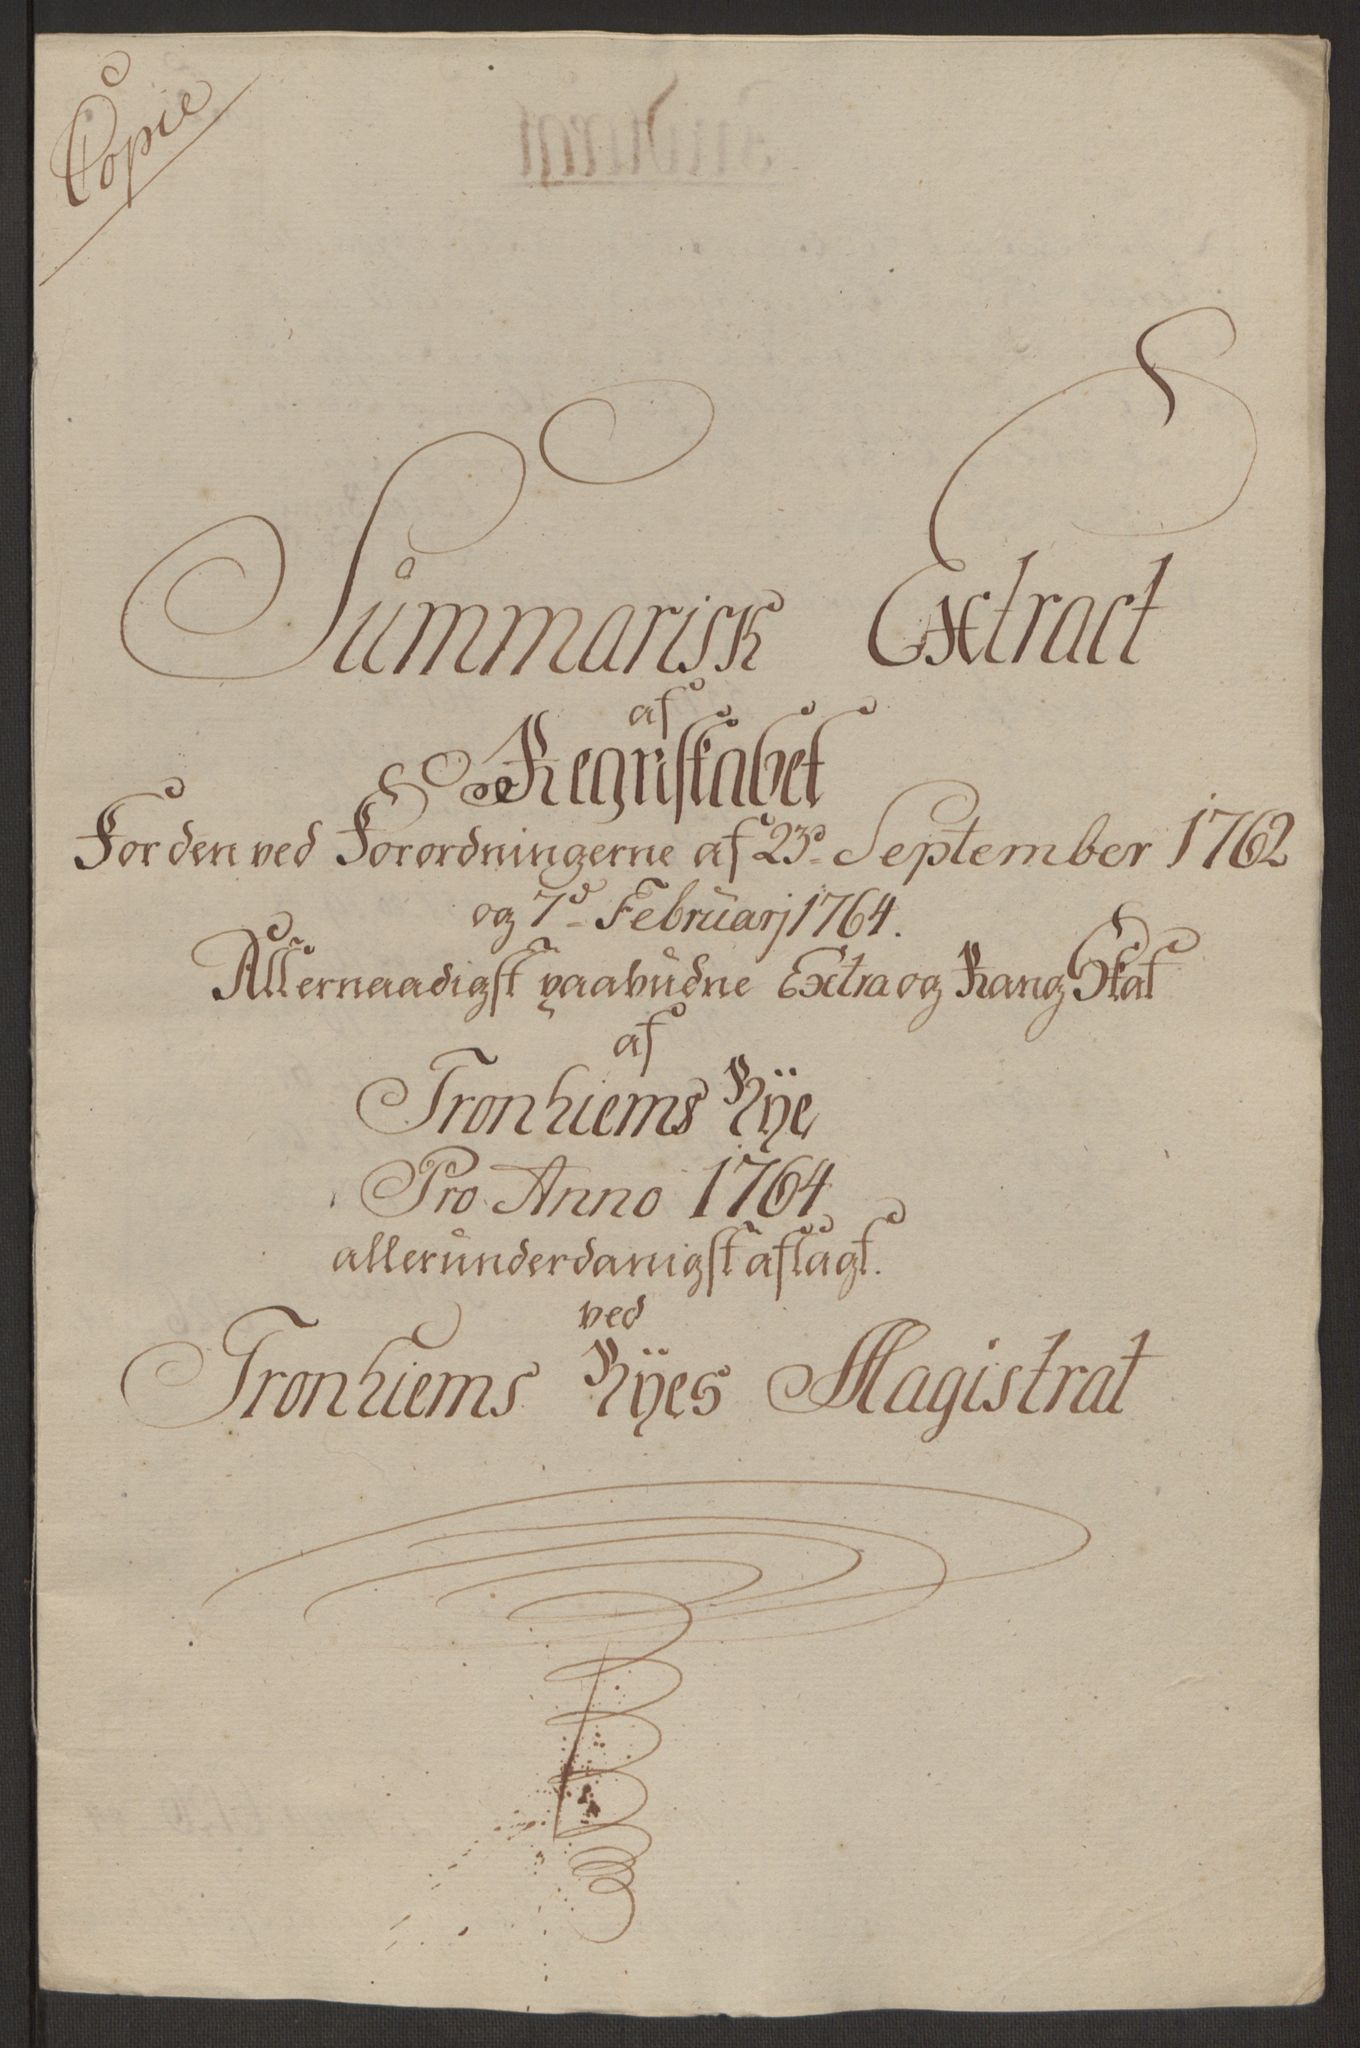 Copie
Summarisk Extract
af
Regnskabet
For den ved Forordningerne af 23d September 1762
og 7d Februarj 1764.
Allernaadigst paabudne Extra og Rang Skat
af
Tronhiems Bÿe
Pro Anno 1764
allerunderdanigst aflagt.
ved
Tronhiems Bÿes Magistrat